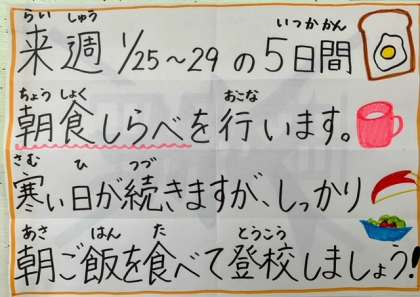 らいしゅう いつかかん
来週 1/25〜29 の5日間
ちょうしょく おこな
朝食しらべを行います。
さむ ひ つづ
寒い日が続きますが、しっかり
あさ はん た とうこう
朝ご飯を食べて登校しましょう!